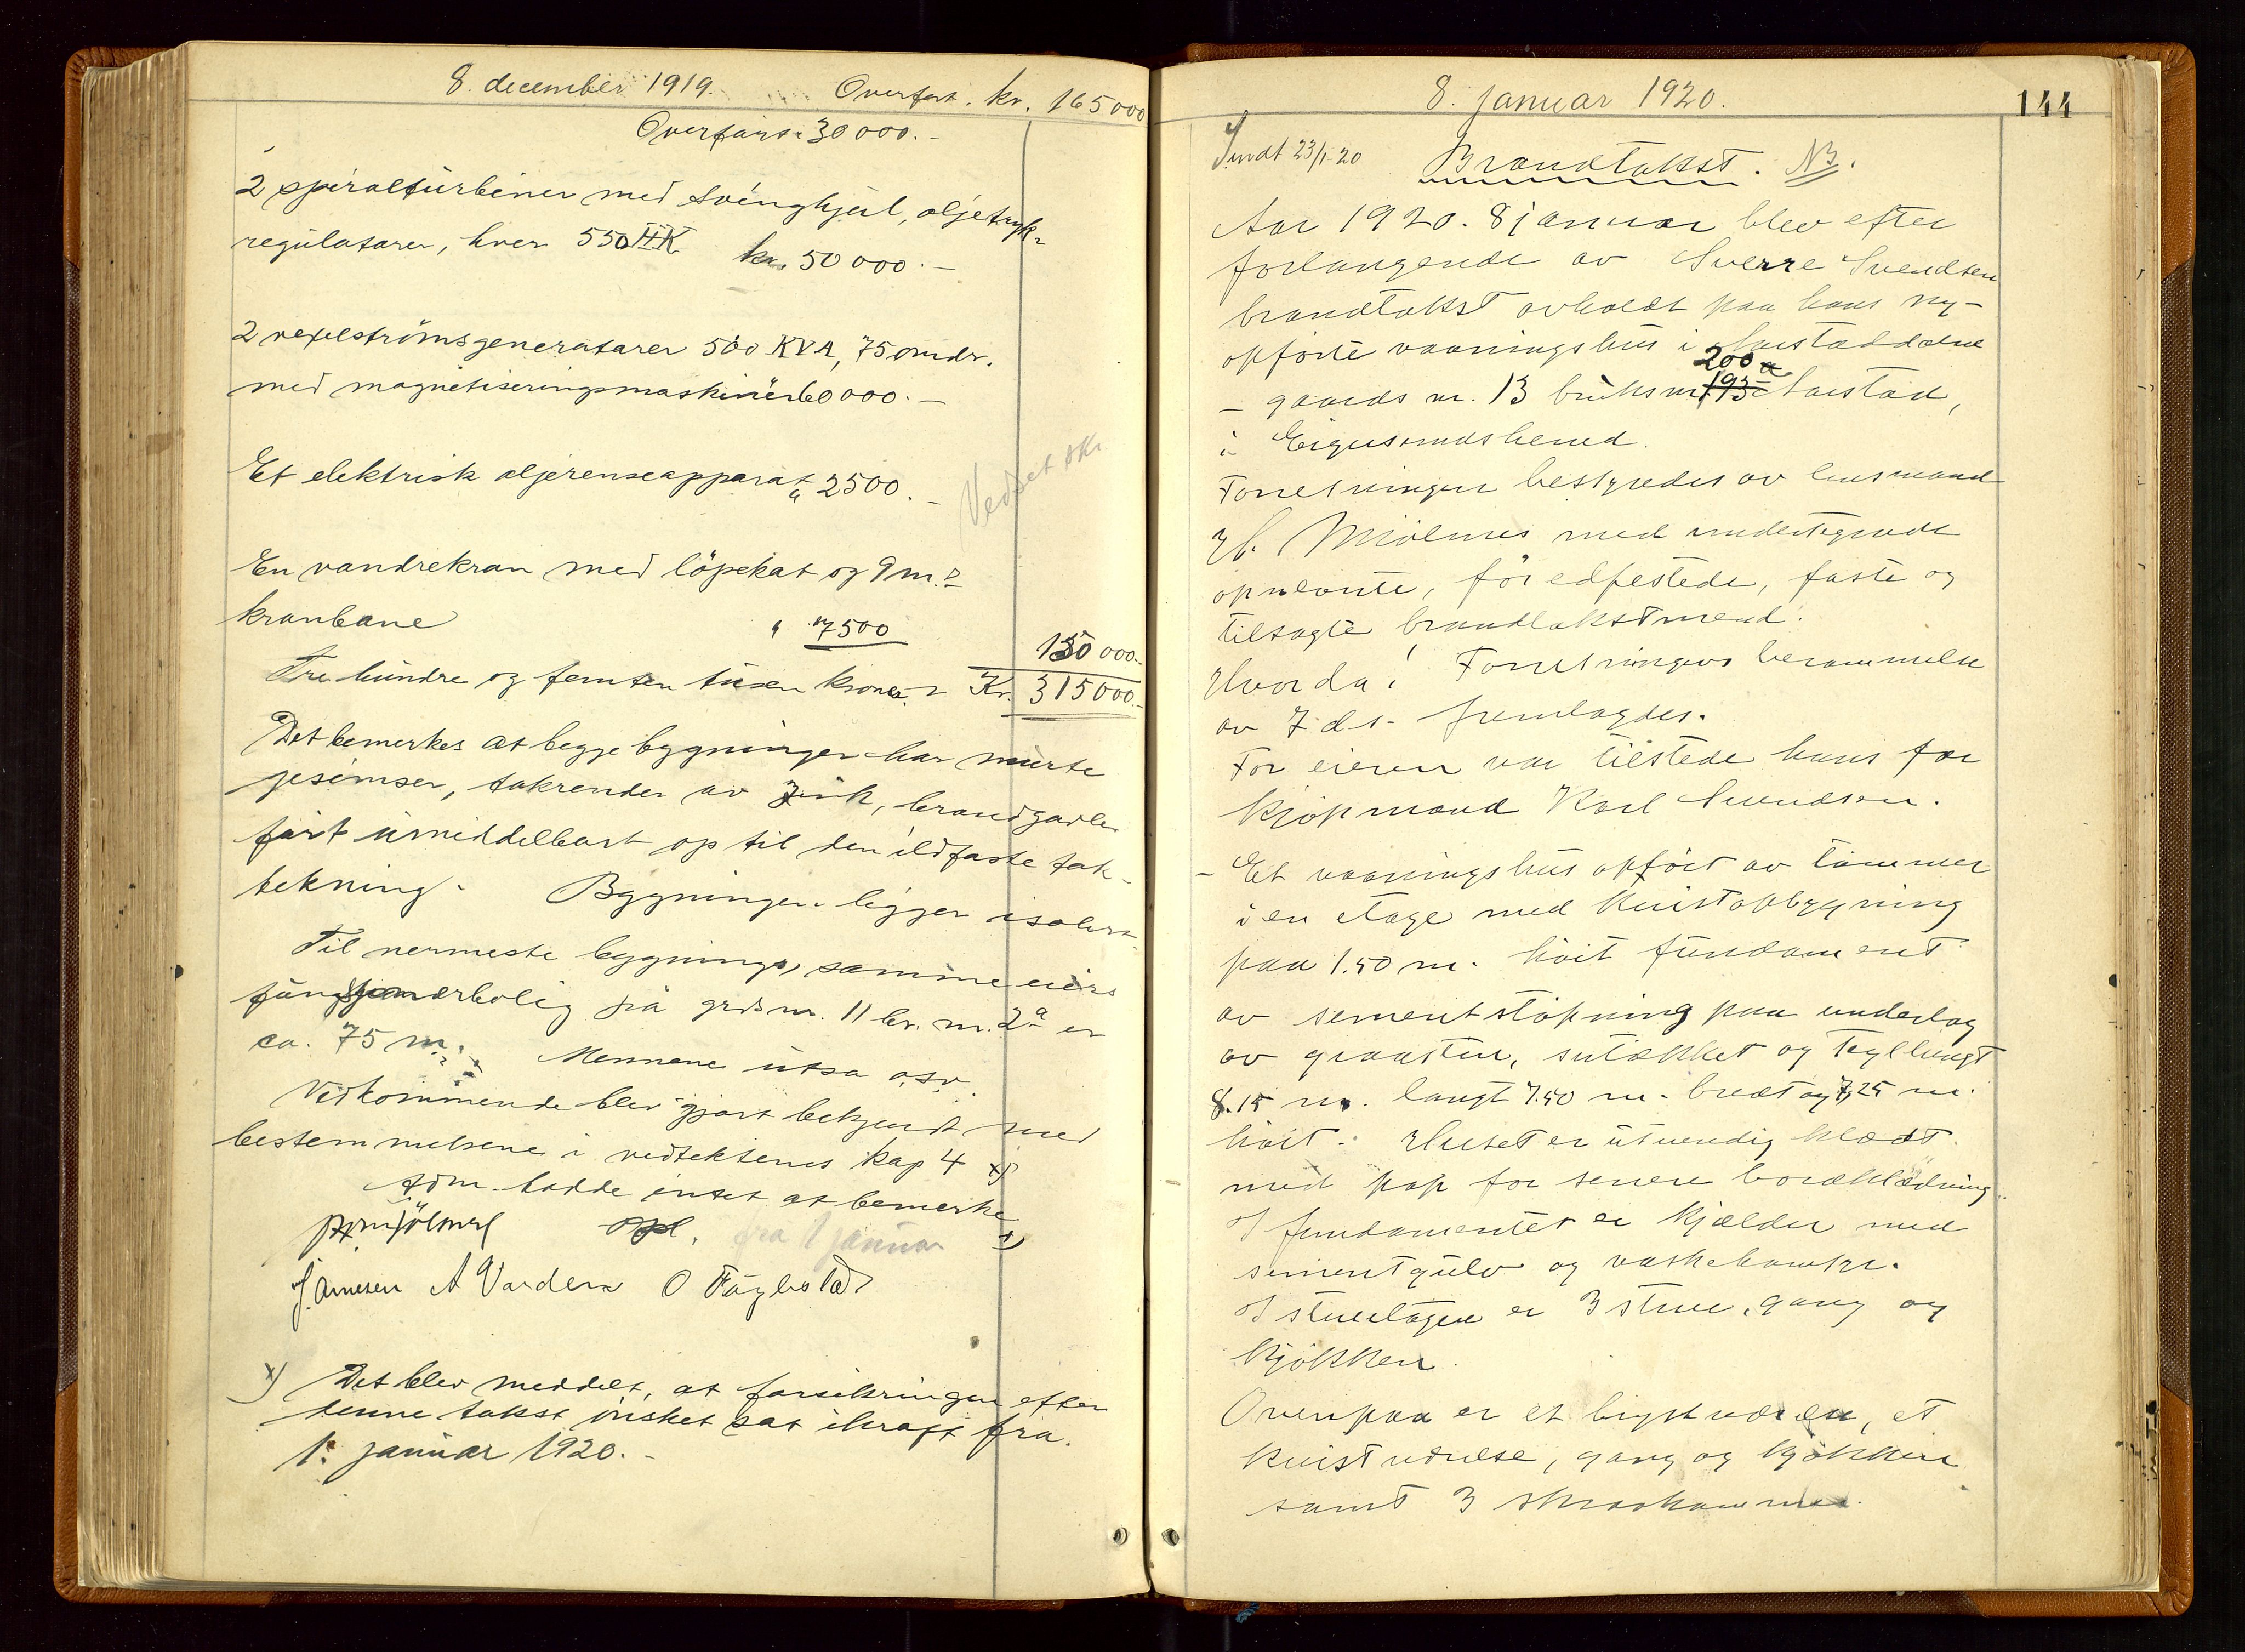 8. december 1919. Overført. kr. 165000
Overført 30000.-
2 spiralturbiner med svinghjul, oljetryk-
regulatorer, hver 550 HK kr. 50000.-
2 vexelstrømsgeneratorer 500 KVA, 750 mdr.
med magnetiseringsmaskiner 60000.-
Et elektrisk oljerenseapparat " 2500.-
En vandrekran med löpekat og 9 m.
kranbane " 7500
150000.-
Tre hundre og femten tusen kroner Kr. 315000.-
Det bemerkes at begge bygninger har murte
gesimser, takrender av zink, brandgavler
ført umiddelbart op til den ildfaste tak-
tekning. Bygningen ligger isolert.
Til nermeste bygning, samme eiers
funktionærbolig på grdsnr. 11 br. nr. 2a er
ca. 75 m. Mennene utsa osv.
Vedkommende blev gjort bekjendt med
bestemmelsene i vedtektenes kap 4 x)
Adm. hadde intet at bemerke
opl. fra 1 januar x)
J. Arnesen A Varden O Fuglestad
x) Det blev meddelt, at forsikringen efter
denne takst ønsket sat ikraft fra
1. januar 1920.-
8. januar 1920.
144
Sendt 23/1-20 Brandtakst. NB.
Aar 1920. 8 januar blev efter
forlangende av Sverre Svendsen
brandtakst avholdt paa hans ny-
opførte vaaningshus i
200 a
- gaards nr. 13 bruksnr 195
i Eigersundsherred.
Forretningen bestyredes av lensmand
med undertegnede
opnevnte, før edfestede, faste og
tilsagte brandtakstmend.
Hvorda! Forretningens berammelse
av 7 ds. fremlagdes.
For eieren var tilstede hans far
kjøpmand Karl Svendsen.
- Et vaaningshus opført av tømmer
i en etage med kvistopbygning
paa 1.50 m. høit fundament
av sementstøpning paa underlag
av graasten, sutækket og teglhengt
8.15 m. langt 7.50 m. bredt og 7,25 m.
høit. Huset er utvendig klædt
med pap for senere bordklædning.
I fundamentet er kjælder med
sementgulv og vaskehamer.
I stueetagen er 3 stuer, gang og
kjøkken.
Ovenpaa er et brystværelse, et
kvistværelse, gang og kjøkken
samt 3 skraakammer.